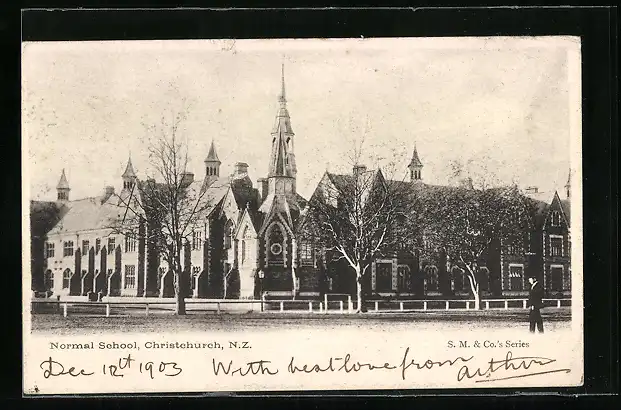 Normal School, Christchurch, N.Z.
S. M. & Co.'s Series
Dec 12th 1903 With best love from Arthur